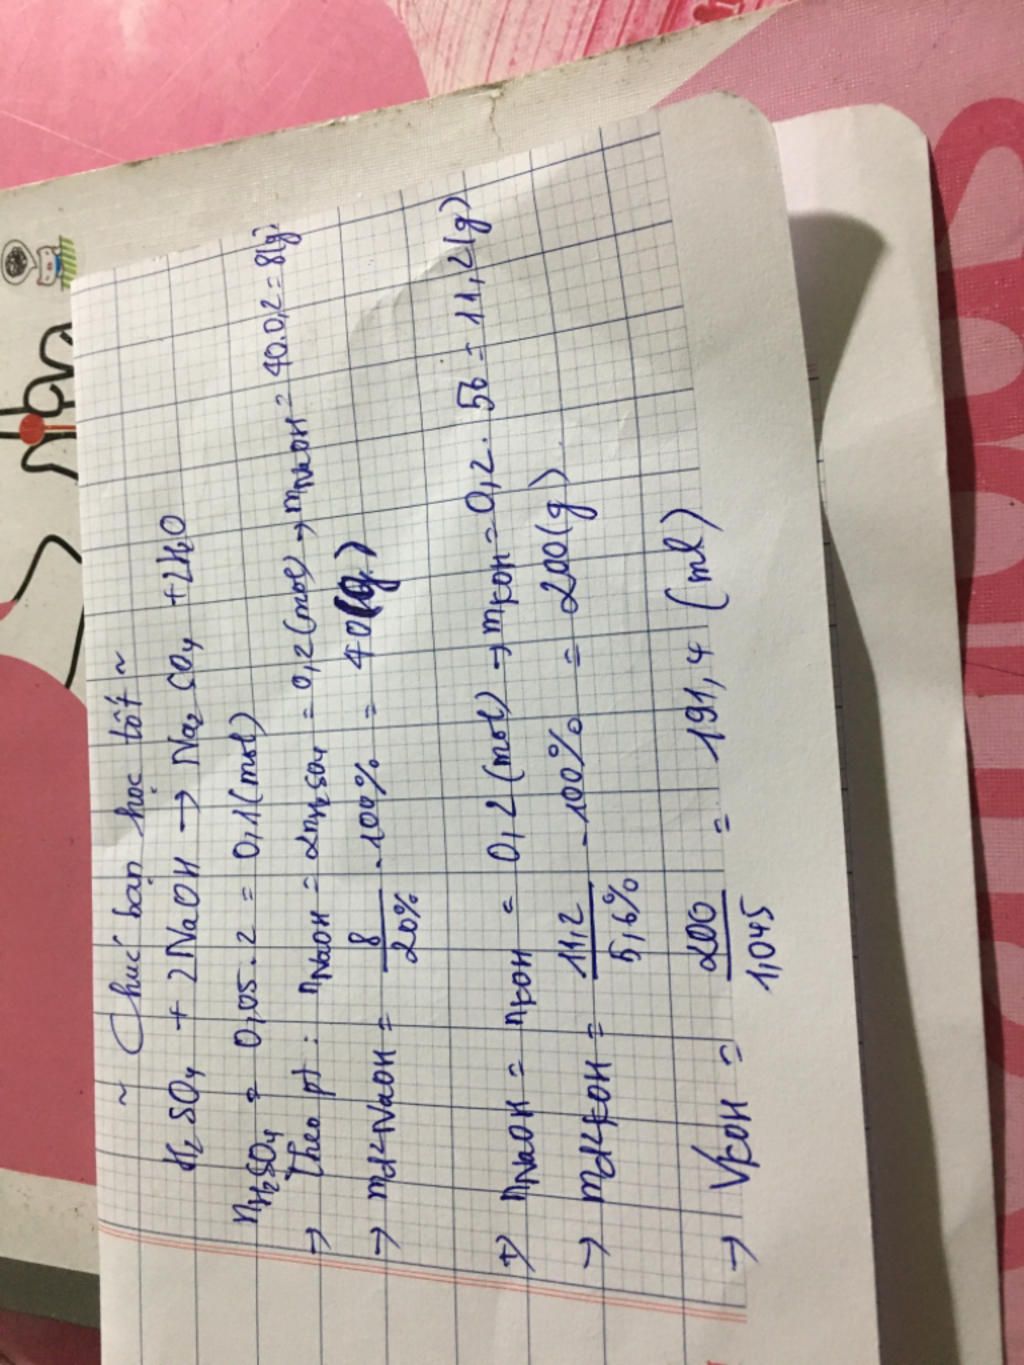 ~ Chúc bạn học tốt ~
H₂SO₄ + 2NaOH → Na₂SO₄ + 2H₂O
nH₂SO₄ = 0,05.2 = 0,1(mol)
→ Theo pt: nNaOH = 2nH₂SO₄ = 0,2(mol) → mNaOH = 40.0,2 = 8(g)
→ md²NaOH = 8/20% .100% = 40(g)
+) nNaOH = nKOH = 0,2(mol) → mKOH = 0,2.56 = 11,2(g)
→ md²KOH = 11,2/5,6% .100% = 200(g)
→ VKOH = 200/1,045 = 191,4 (ml)